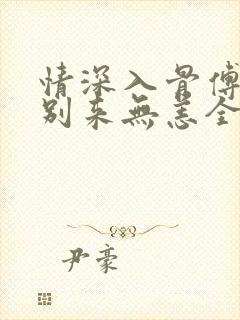 情深入骨傅
别来無恙全
尹豪